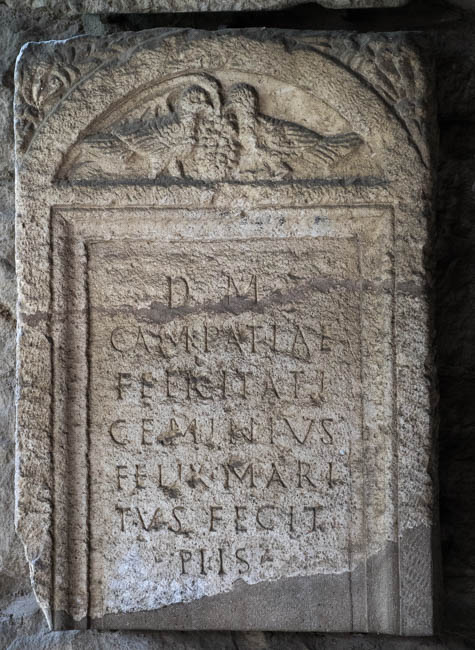 D M
CAMPATIAE
FELICITATI
GEMINIVS
FELIX MARI
TVS FECIT
PIIS